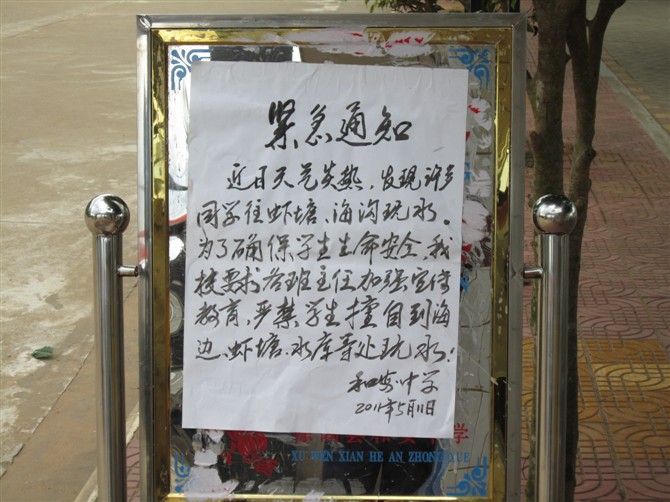 紧急通知
近日天气炎热，发现许多
同学往虾塘、海沟玩水。
为了确保学生生命安全，我
校要求各班主任加强宣传
教育，严禁学生擅自到海
边、虾塘、水库等处玩水！
和安中学
2011年5月11日
学
XU WEN XIAN HE AN ZHONG XUE